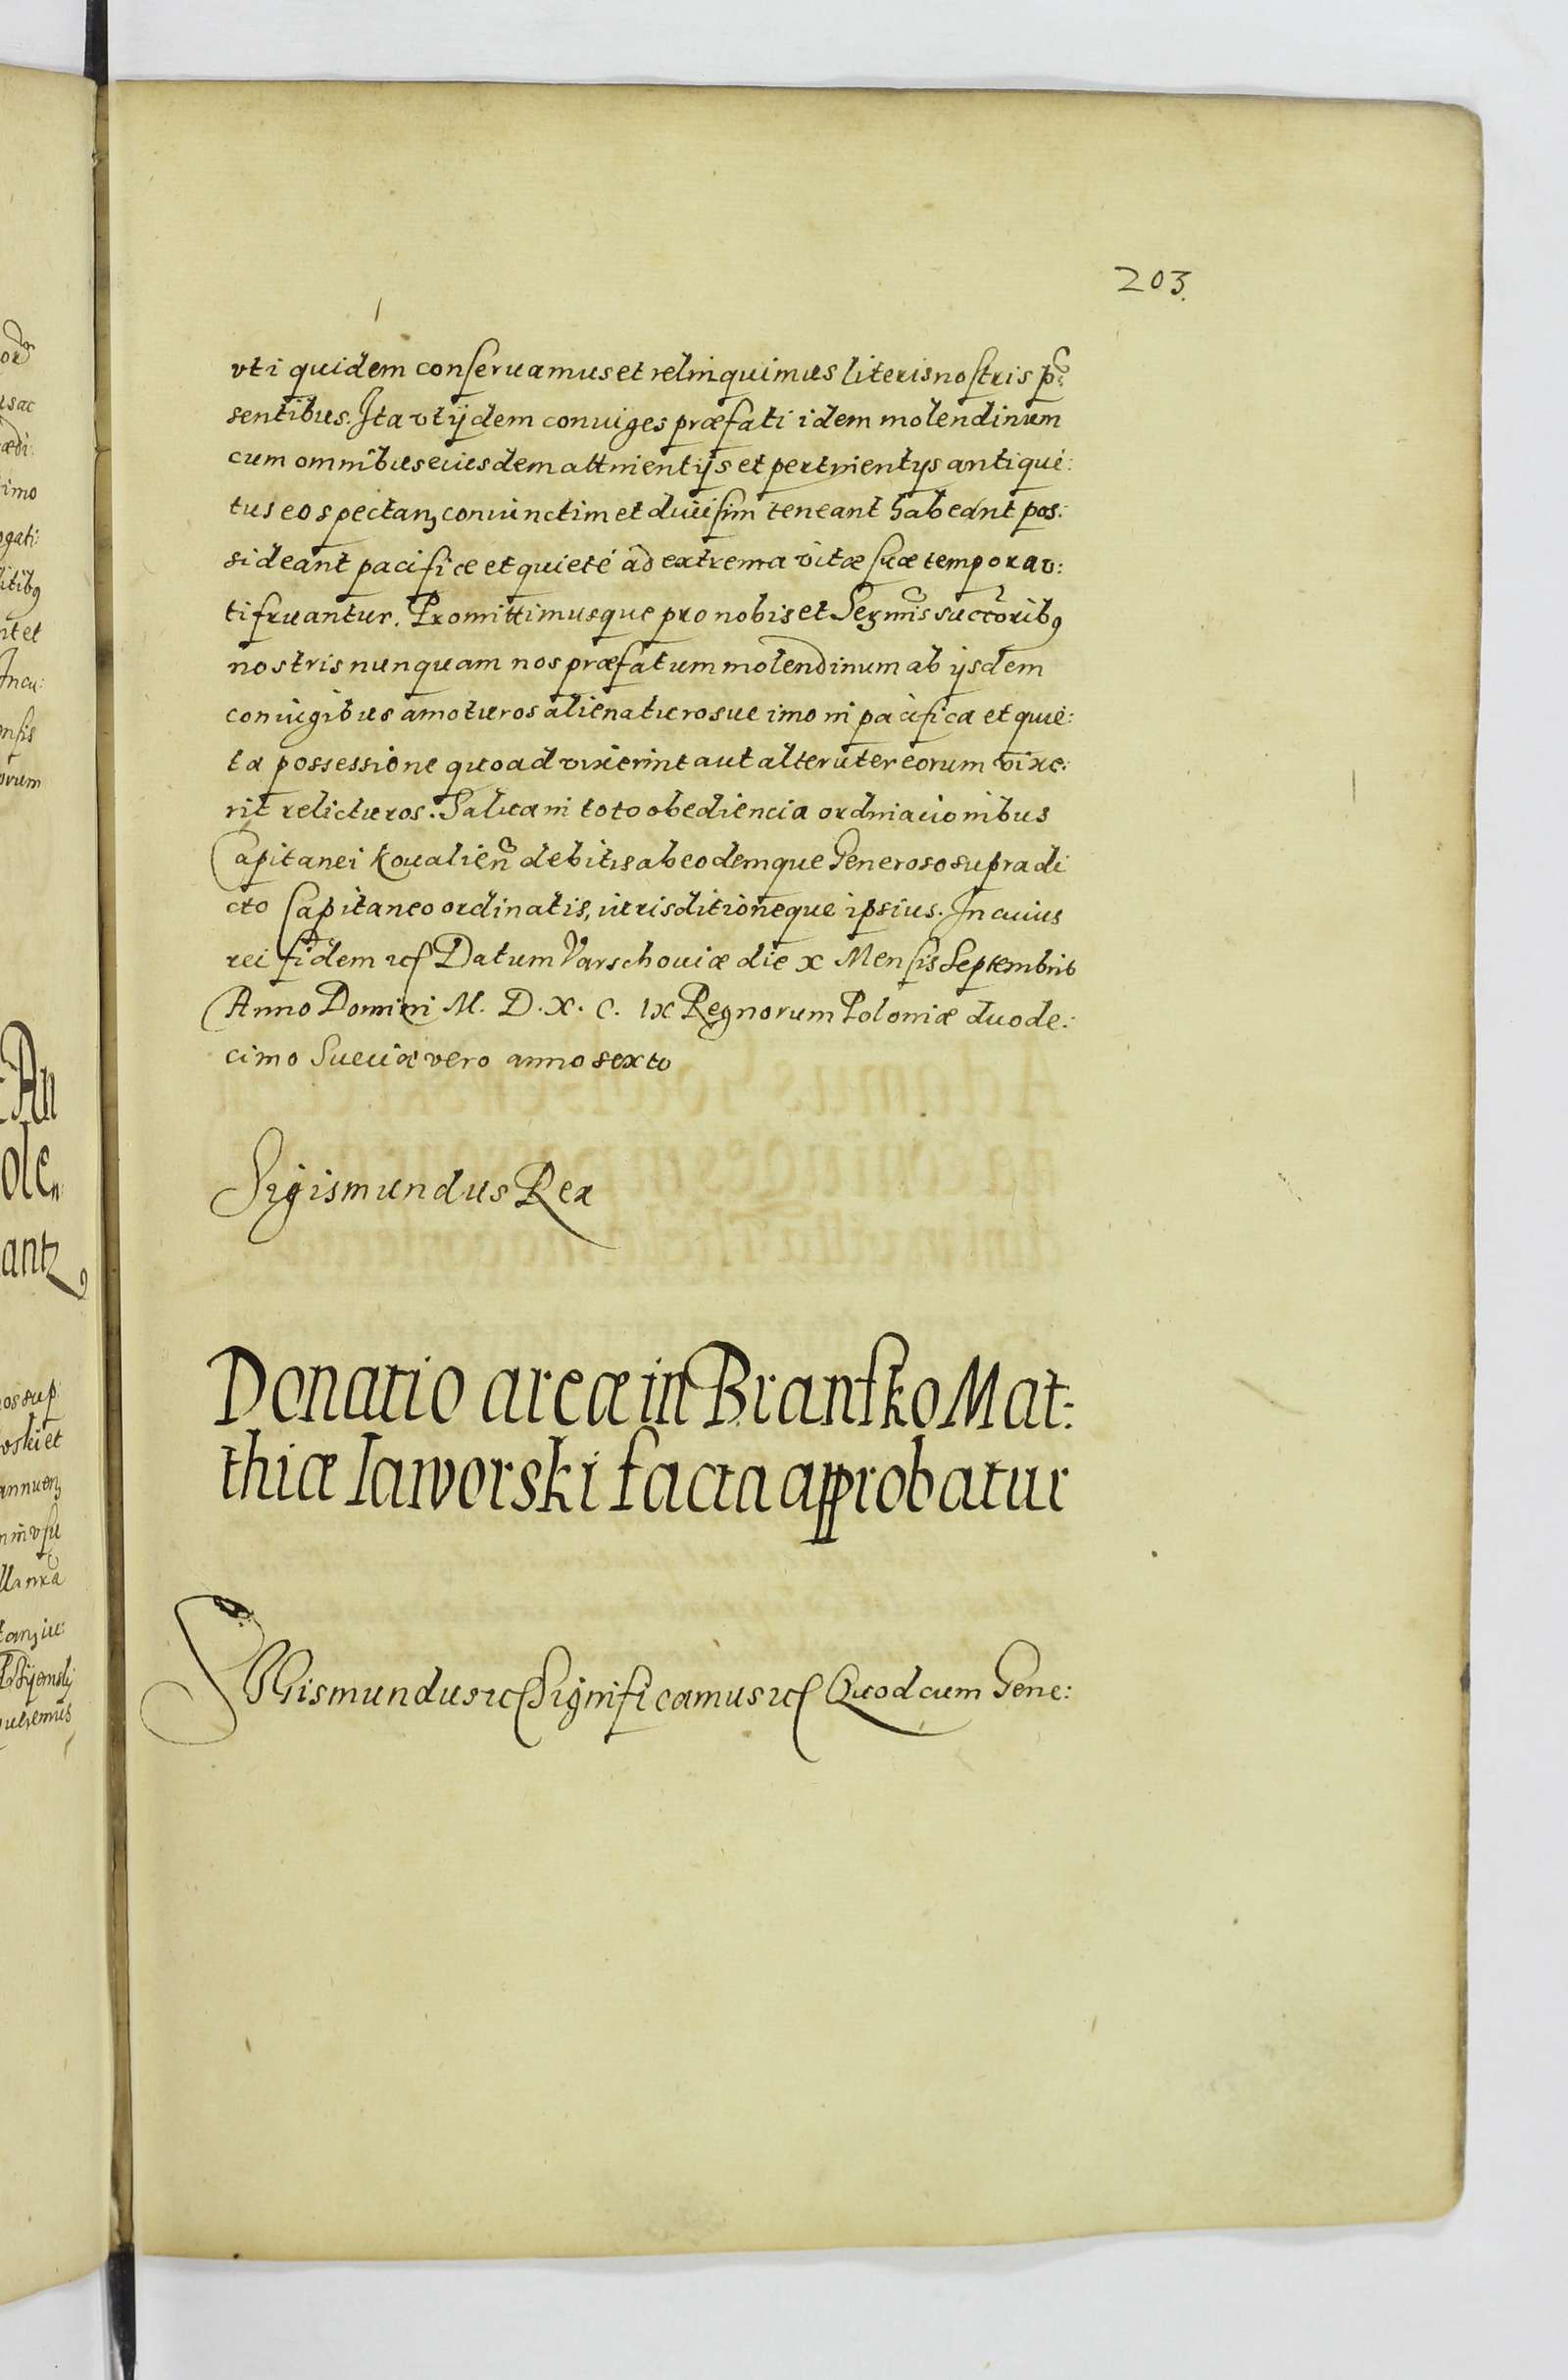 203.
vti quidem conseruamus et relinquimus literis nostris p̃
sentibus. Ita vt ijdem coniuges præfati idem molendinum
cum omnibus eiusdem attinentijs et pertinentijs antiqui:
tus eo spectanʒ coniunctim et diuisim teneant habeant pos:
sideant pacifice et quieté ad extrema vitæ suæ tempora v:
ti fruantur. Promittimusque pro nobis et Serm̃is succ̃oribꝯ
nostris nunquam nos præfatum molendinum ab ijsdem
coniugibus amoturos alienaturosue imo in pacifica et quie:
ta possessione quoad vixerint aut alteruter eorum vixe:
rit relicturos. Salua in toto obediencia ordinacionibus
Capitanei Koualien̄ debitis ab eodemque Generoso supradi
cto Capitaneo ordinatis, iurisditioneque ipsius. In cuius
rei fidem ꝛc Datum Varschouiæ die x Mensis Septembris
Anno Domini M. D. X. C. IX Regnorum Poloniæ duode:
cimo Sueciæ vero anno sexto
Sigismundus Rex
Donatio areæ in Bransko Mat:
thiæ Jaworski facta approbatur
SIGismundus ꝛc Significamus ꝛc Quod cum Gene: